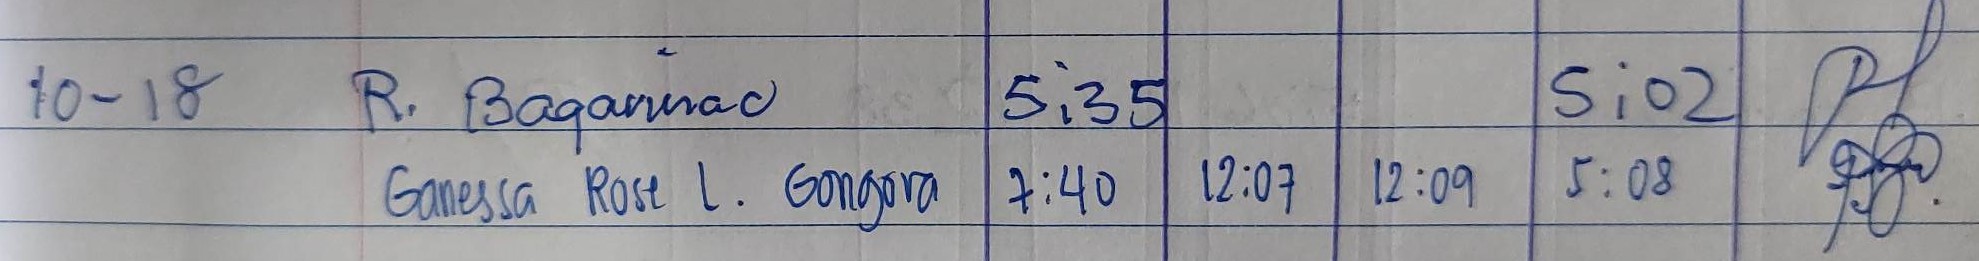 10-18 R. Bagarinao 5:35 5:02
Ganessa Rose L. Gongora 7:40 12:07 12:09 5:08